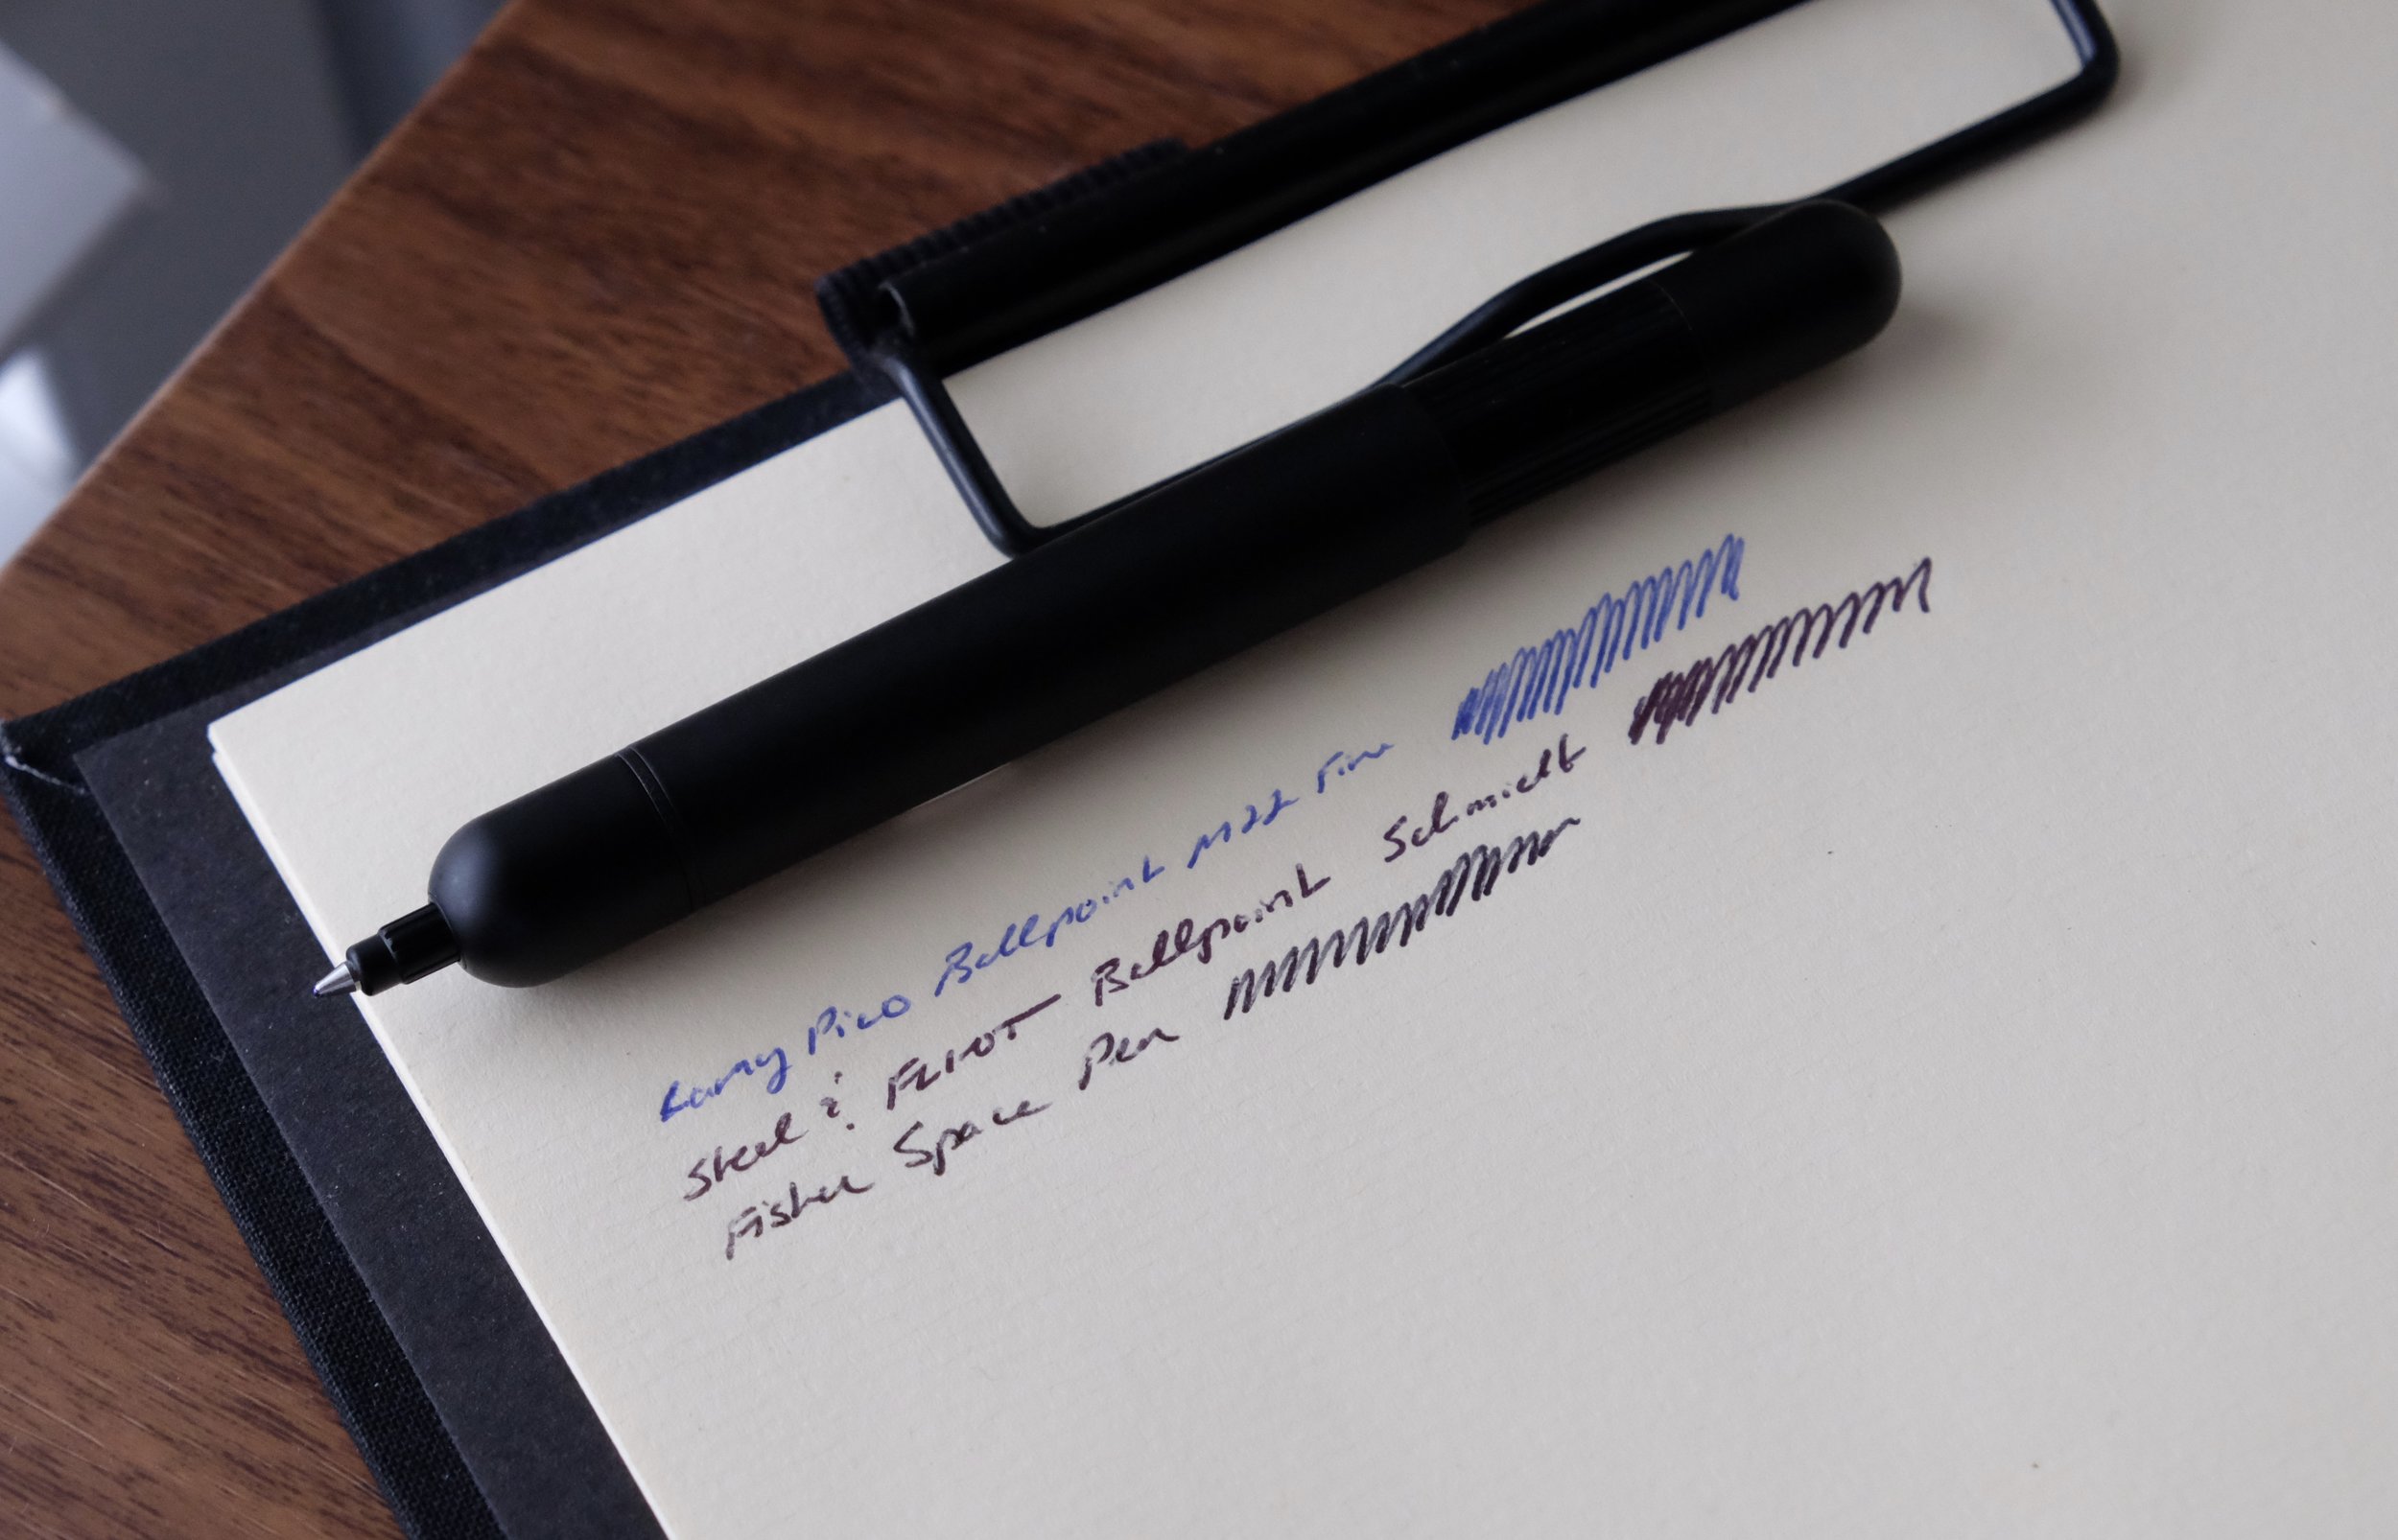 Lamy Pico Ballpoint M22 Fine
Steel & FLINT Ballpoint Schmidt
Fisher Space Pen